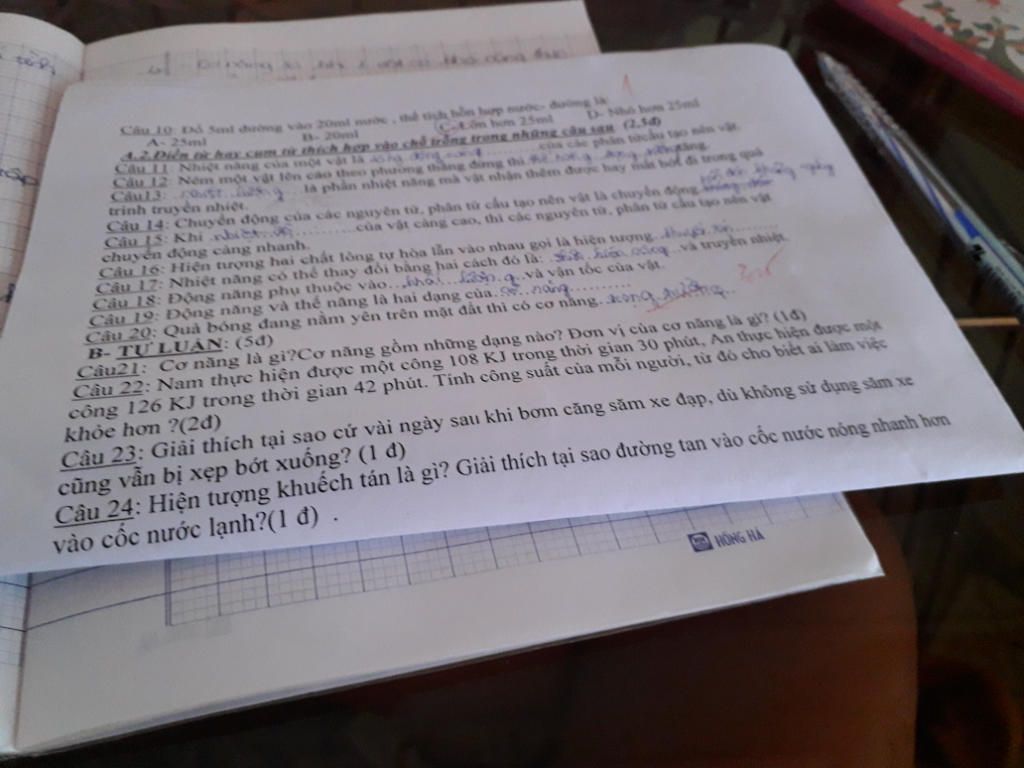 Câu 10: Đổ 5ml đường vào 20ml nước , thể tích hỗn hợp nước- đường là:
A- 25ml B- 20ml C- Lớn hơn 25ml D- Nhỏ hơn 25ml
A.2.Điền từ hay cụm từ thích hợp vào chỗ trống trong những câu sau (2.5đ)
Câu 11: Nhiệt năng của một vật là tổng động năng của các phân tử cấu tạo nên vật.
Câu 12: Ném một vật lên cao theo phương thẳng đứng thì năng.
Câu13: nhiệt lượng là phần nhiệt năng mà vật nhận thêm được hay mất bớt đi trong quá
trình truyền nhiệt.
Câu 14: Chuyển động của các nguyên tử, phân tử cấu tạo nên vật là chuyển động không ngừng
Câu 15: Khi nhiệt độ của vật càng cao, thì các nguyên tử, phân tử cấu tạo nên vật
chuyển động càng nhanh.
Câu 16: Hiện tượng hai chất lỏng tự hòa lẫn vào nhau gọi là hiện tượng khuếch tán
Câu 17: Nhiệt năng có thể thay đổi bằng hai cách đó là: thực hiện công và truyền nhiệt.
Câu 18: Động năng phụ thuộc vào khối lượng và vận tốc của vật.
Câu 19: Động năng và thế năng là hai dạng của cơ năng
Câu 20: Quả bóng đang nằm yên trên mặt đất thì có cơ năng trọng trường
B- TỰ LUẬN: (5đ)
Câu21: Cơ năng là gì?Cơ năng gồm những dạng nào? Đơn vị của cơ năng là gì? (1đ)
Câu 22: Nam thực hiện được một công 108 KJ trong thời gian 30 phút, An thực hiện được một
công 126 KJ trong thời gian 42 phút. Tính công suất của mỗi người, từ đó cho biết ai làm việc
khỏe hơn ?(2đ)
Câu 23: Giải thích tại sao cứ vài ngày sau khi bơm căng săm xe đạp, dù không sử dụng săm xe
cũng vẫn bị xẹp bớt xuống? (1 đ)
Câu 24: Hiện tượng khuếch tán là gì? Giải thích tại sao đường tan vào cốc nước nóng nhanh hơn
vào cốc nước lạnh?(1 đ) .
HỒNG HÀ